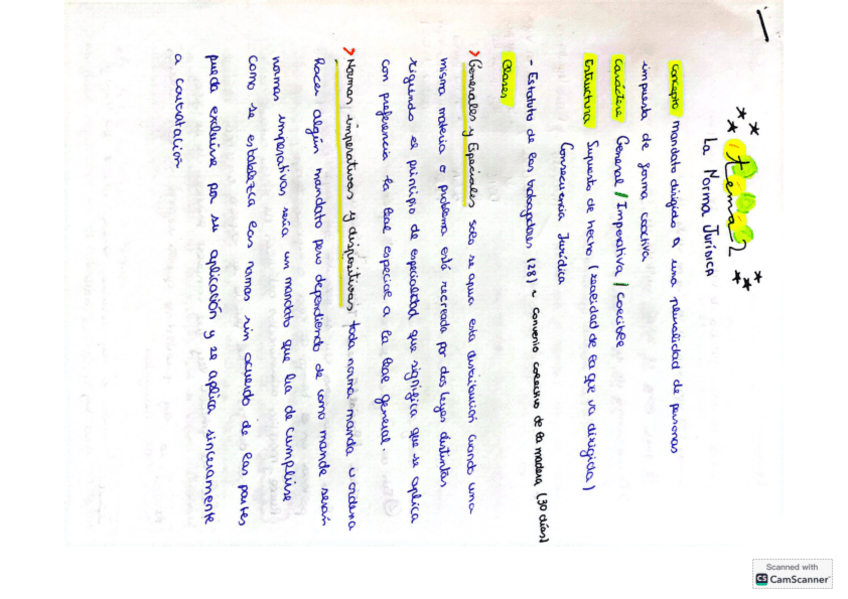 tema 2
La Norma Jurídica
Concepto mandato dirigido a una pluralidad de personas
impuesta de forma coactiva
Carácter General / Imperativa / Coercible
Estructura Supuesto de hecho (realidad de la que va dirigida)
Consecuencia Jurídica
- Estatuto de los trabajadores (28) ~ convenio colectivo de la madera (30 días)
Clases
> Generales y Especiales solo se aplica esta distribución cuando una
misma materia o problema está recreado por dos leyes distintas
siguiendo el principio de especialidad que significa que se aplica
con preferencia la ley especial a la ley general.
> Normas imperativas y dispositivas toda norma manda u ordena
hacer algún mandato pero dependiendo de como mande serán
normas imperativas seria un mandato que ha de cumplirse
como se establezca las normas sin acuerdo de las partes
pueda excluirse por su aplicación y se aplica sinceramente
a contratación
Scanned with
CS CamScanner